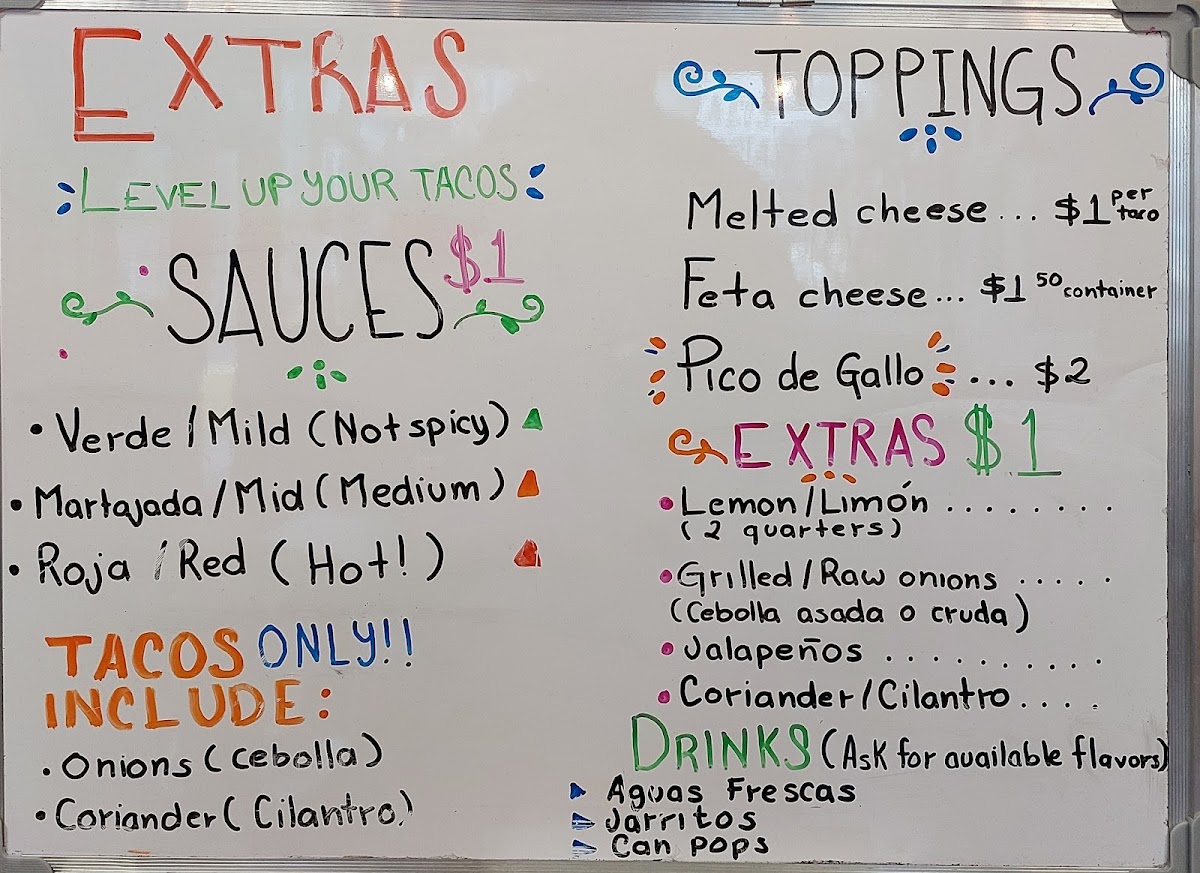 EXTRAS
LEVEL UP YOUR TACOS
SAUCES $1
• Verde / Mild (Not spicy)
• Martajada / Mid (Medium)
• Roja / Red (Hot!)
TACOS ONLY!!
INCLUDE:
• Onions (cebolla)
• Coriander (Cilantro)
TOPPINGS
Melted cheese ... $1 per taco
Feta cheese ... $1 50 container
Pico de Gallo .... $2
EXTRAS $1
• Lemon/Limón ........
(2 quarters)
• Grilled/Raw onions .....
(Cebolla asada o cruda)
• Jalapeños ..........
• Coriander/Cilantro ....
DRINKS (Ask for available flavors)
▶ Aguas Frescas
▶ Jarritos
▶ Can pops